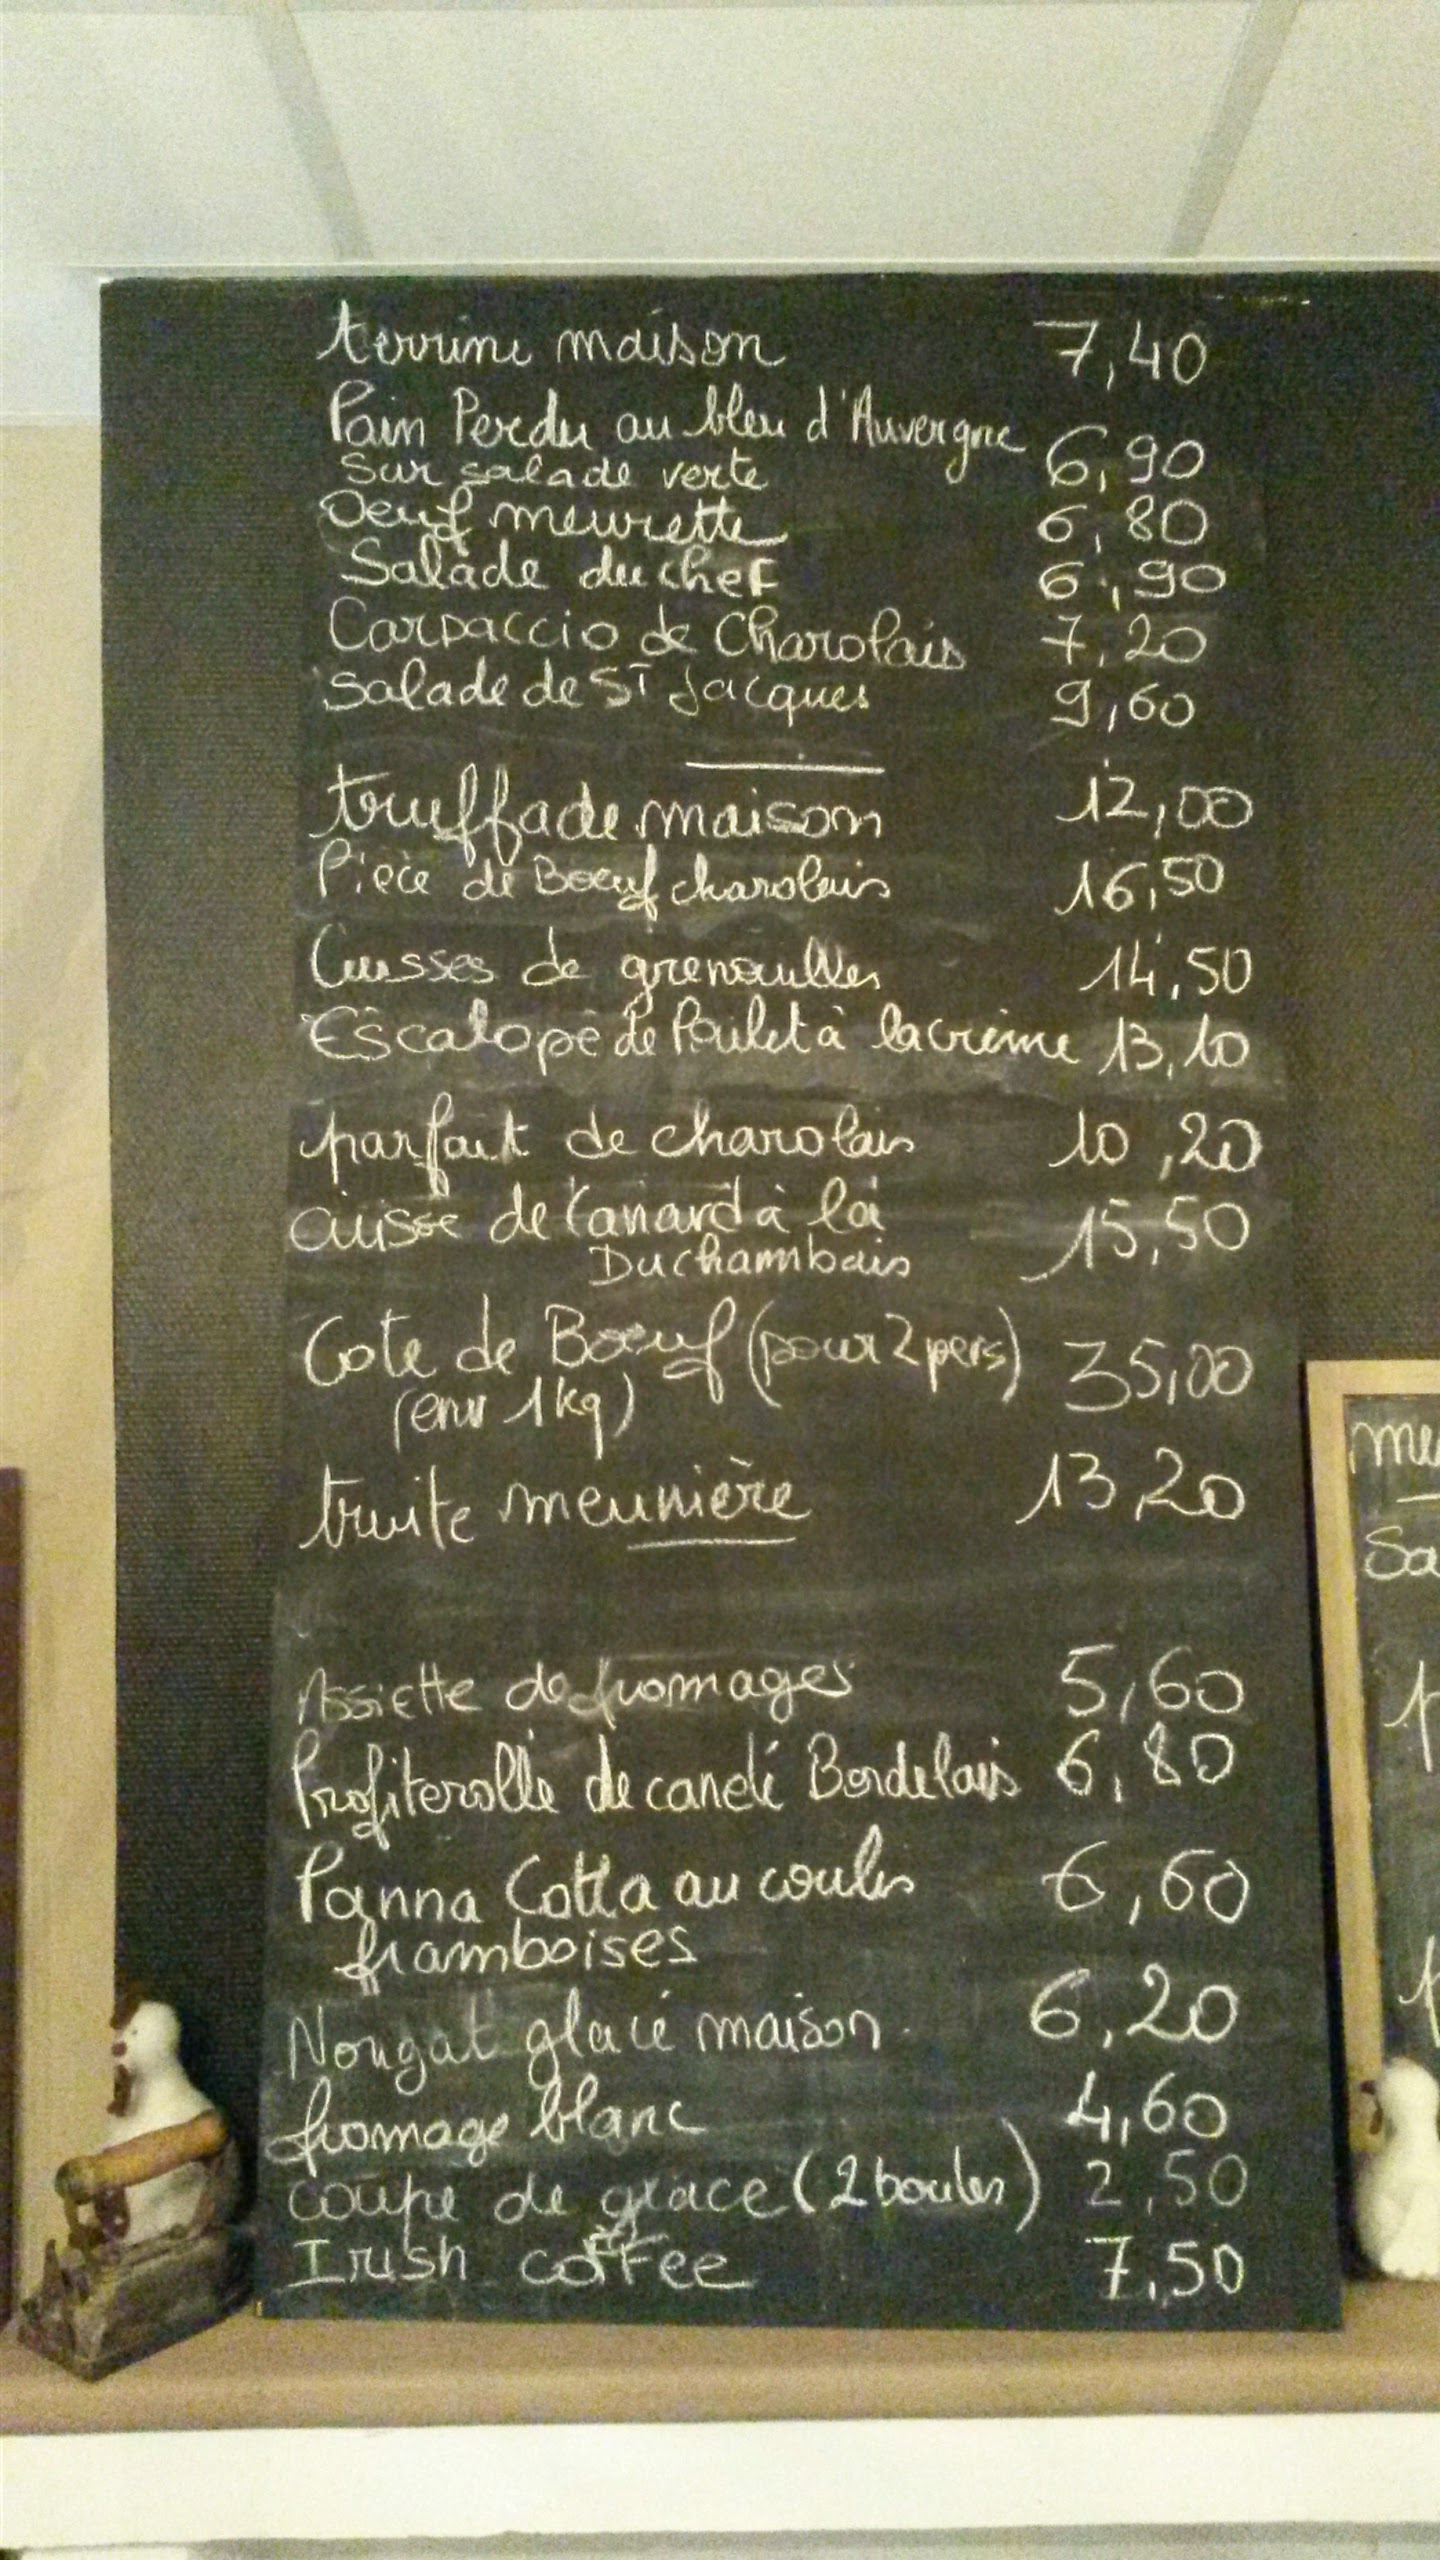 terrine maison 7,40
Pain Perdu au bleu d'Auvergne
sur salade verte 6,90
Oeuf meurette 6,80
Salade du chef 6,90
Carpaccio de Charolais 7,20
Salade de ST Jacques 9,60
truffade maison 12,00
Pièce de Boeuf charolais 16,50
Cuisses de grenouilles 14,50
Escalope de Poulet à la crème 13,10
parfait de charolais 10,20
cuisse de Canard à la 15,50
Duchambais
Cote de Boeuf (pour 2 pers) 35,00
(env 1kg)
truite meunière 13,20
Assiette de fromages 5,60
Profiterolle de canelé Bordelais 6,80
Panna Cotta au coulis 6,60
framboises
Nougat glacé maison 6,20
fromage blanc 4,60
coupe de glace (2 boules) 2,50
Irish coffee 7,50
me
Sa